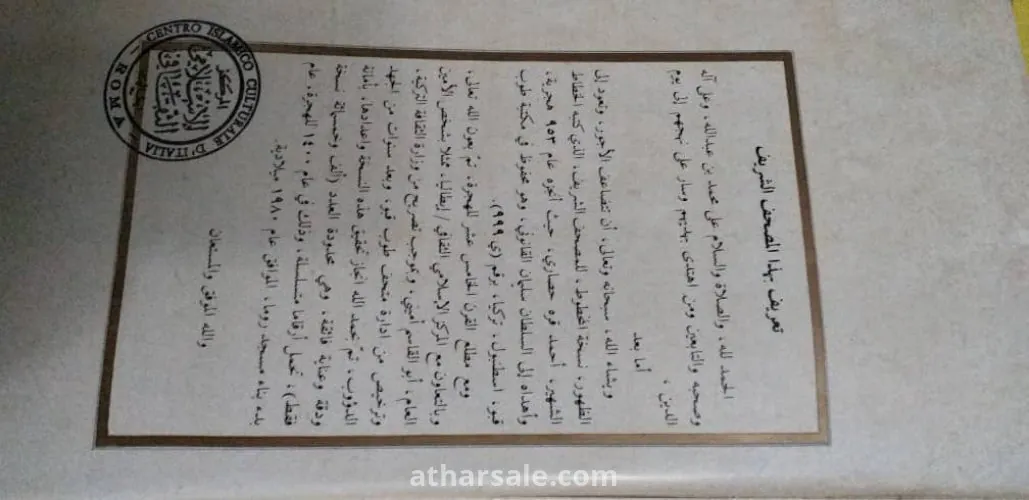 تعريف بهذا المصحف الشريف
الحمد لله، والصلاة والسلام على محمد بن عبدالله، وعلى آله
وصحبه والتابعين ومن اهتدى بهديهم وسار على نهجهم إلى يوم
الدين،
أما بعد
ويشاء الله، سبحانه وتعالى، أن تتضاعف الأجور، وتعود إلى
الظهور، نسخة المخطوط، للمصحف الشريف، الذي كتبه الخطاط
الشهير، أحمد قره حصاري، حيث أنجزه عام ٩٥٣ هجرية،
وأهداه إلى السلطان سليمان القانوني، وهو محفوظ في مكتبة طوب
قبو، اسطنبول، تركيا، برقم (ي ٩٩٩).
ومع مطلع القرن الخامس عشر للهجرة، تمّ بعون الله تعالى،
وبالتعاون مع المركز الإسلامي الثقافي / إيطاليا، ممثلا بشخص الأمين
العام، أبو القاسم أميني، وبموجب تصريح من وزارة الثقافة التركية،
وترخيص من ادارة متحف طوب قبو، وبعد سنوات من الجهد
الدؤوب، تمّ بحمد الله انجاز تحقيق هذه النسخة واعدادها، بأمانة
ودقة وعناية فائقة، وهي محدودة العدد (ألف وخمسمائة نسخة
فقط)، تحمل أرقاما متسلسلة، وذلك في عام ١٤٠٠ للهجرة، عام
بدء بناء مسجد روما، الموافق عام ١٩٨٠ ميلادية.
والله الموفق والمستعان
CENTRO ISLAMICO CULTURALE D'ITALIA
ROMA
المركز
الإسلامي
الثقافي
atharsale.com